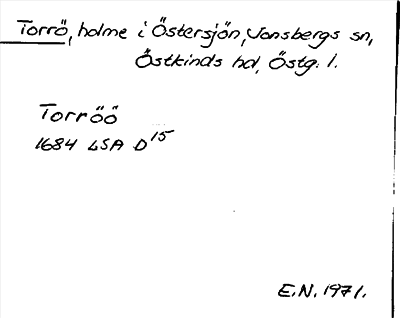 Torrö, holme i Östersjön, Jonsbergs sn,
Östkinds hd, Östg. l.
Torröö
1684 LSA D15
E.N. 1971.